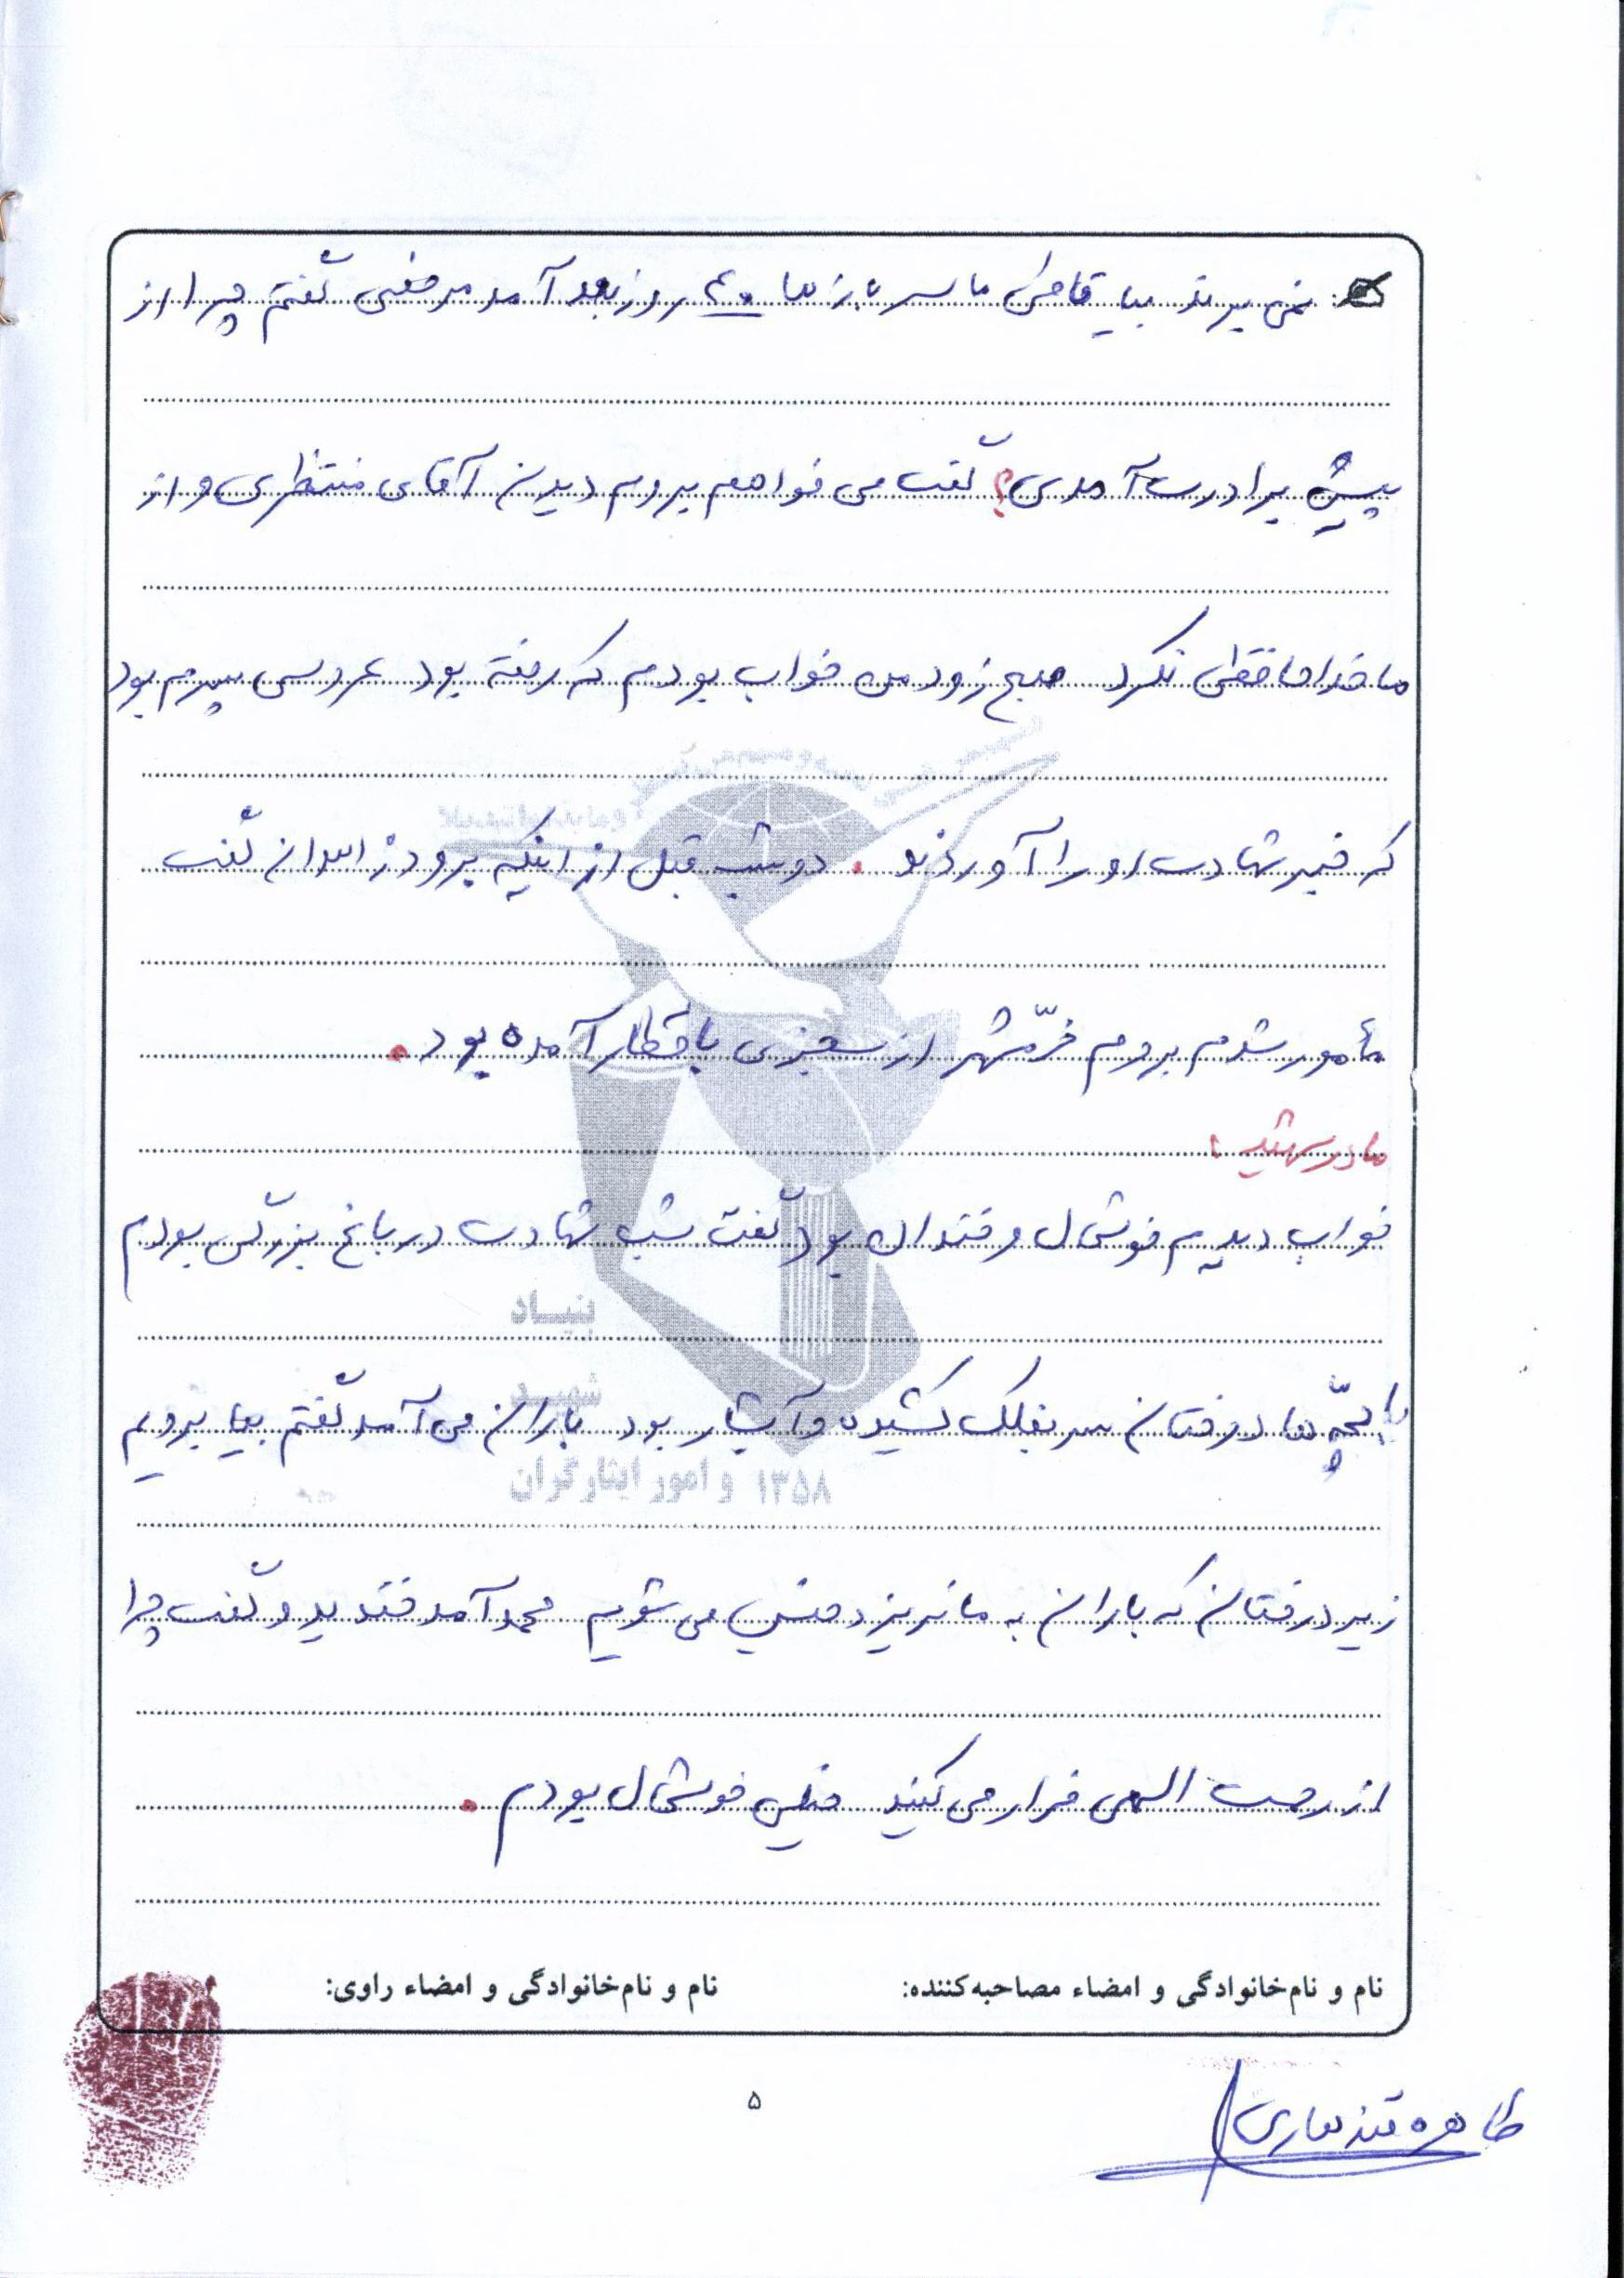 نمی برند بیا قاچاقی ما سربازها ۴۰ روز بعد آمد مرخصی گفتم چرا از
پیش برادرت آمدی؟ گفت می خواهم بروم دیدن آقای منتظری و از
ما خداحافظی نکرد صبح زود من خواب بودم که رفته بود عروسی پسرم بود
که خبر شهادت او را آوردند. دو شب قبل از اینکه برود زاهدان گفت
مأمور شدم بروم خرّمشهر از سفری با قطار آمده بود.
مادر شهید:
خواب دیدم خوشحال و خندان بود گفت شب شهادت در باغ بزرگی بودم
با بچّه ها درختان سر بفلک کشیده و آبشار بود باران می آمد گفتم بیا برویم
زیر درختان که باران به ما نریزد خیس می شویم محمد آمد خندید و گفت چرا
از رحمت الهی فرار می کنید خیلی خوشحال بودم.
بنیاد
شهید
۱۳۵۸ و امور ایثارگران
نام و نام‌خانوادگی و امضاء مصاحبه‌کننده: نام و نام‌خانوادگی و امضاء راوی:
طاهره قندهاری
۵